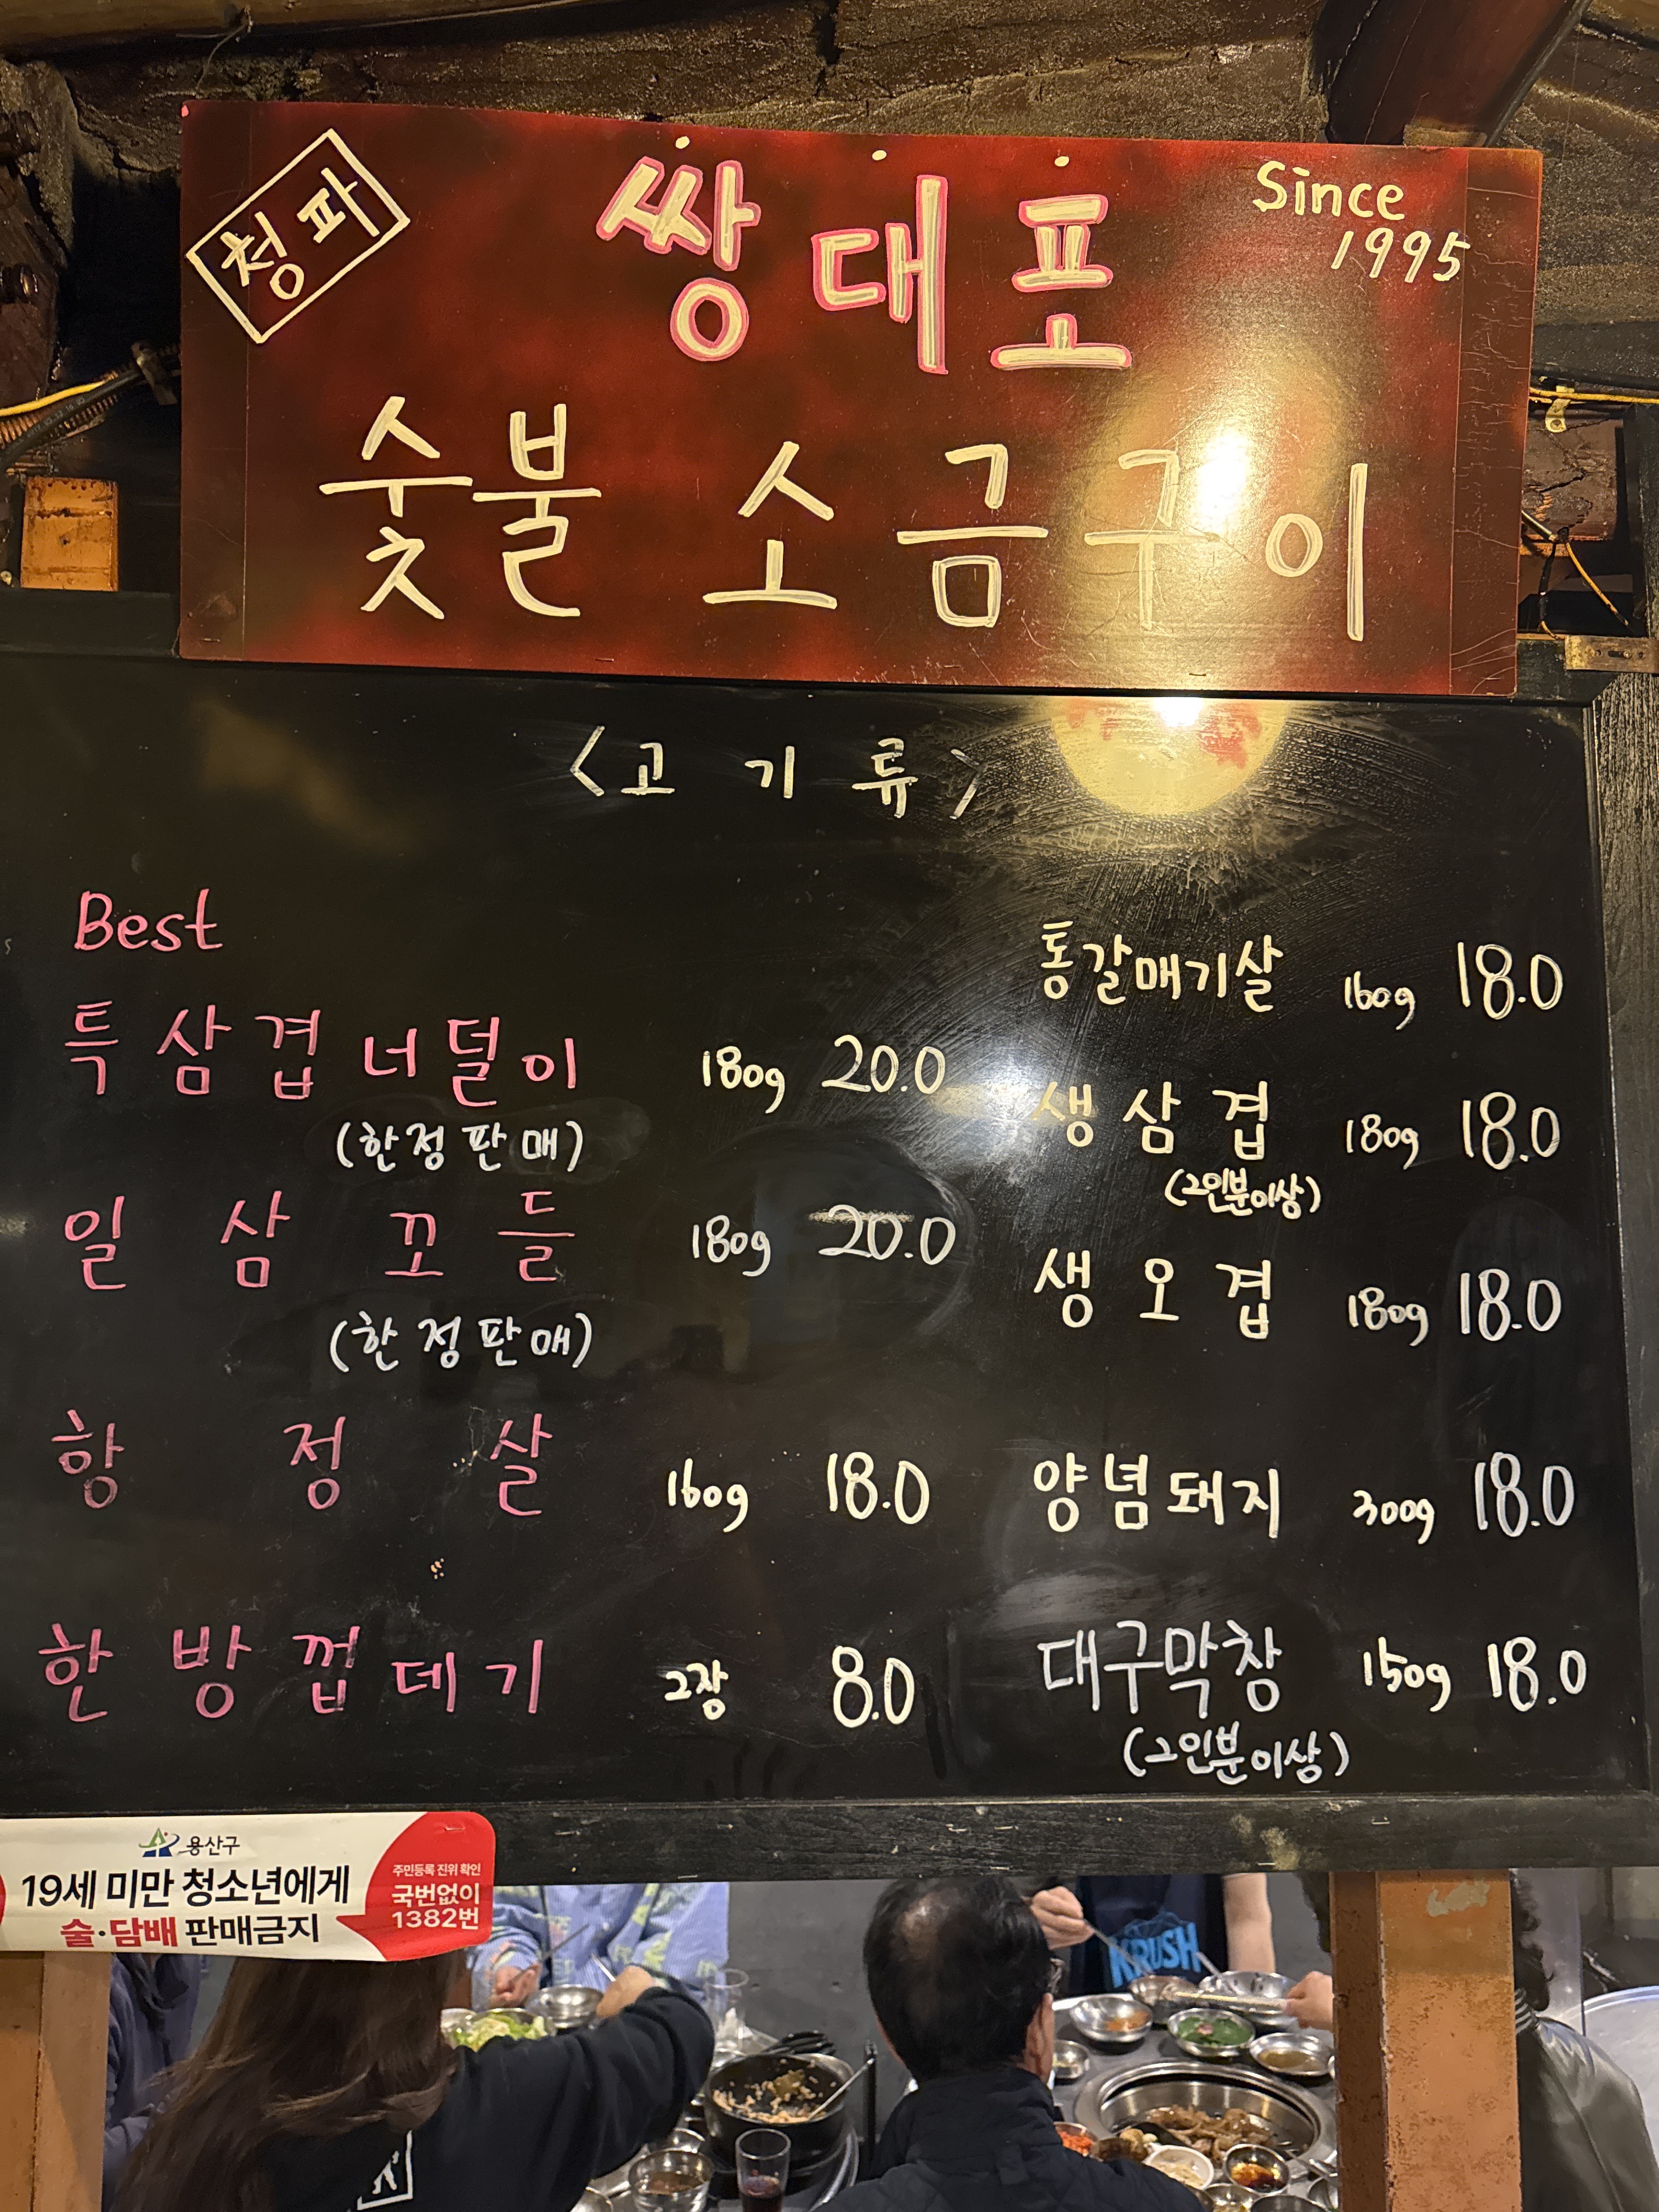 청파
쌍대포
Since
1995
숯불 소금구이
<고기류>
Best
특삼겹너덜이 180g 20.0
(한정판매)
일삼꼬들 180g 20.0
(한정판매)
항정살 160g 18.0
한방껍데기 2장 8.0
통갈매기살 160g 18.0
생삼겹 180g 18.0
(2인분이상)
생오겹 180g 18.0
양념돼지 300g 18.0
대구막창 150g 18.0
(2인분이상)
용산구
19세 미만 청소년에게
술·담배 판매금지
주민등록 진위 확인
국번없이
1382번
KRUSH